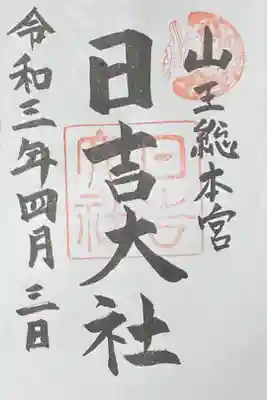 山王総本宮
日吉大社
令和三年四月三日
日吉大社